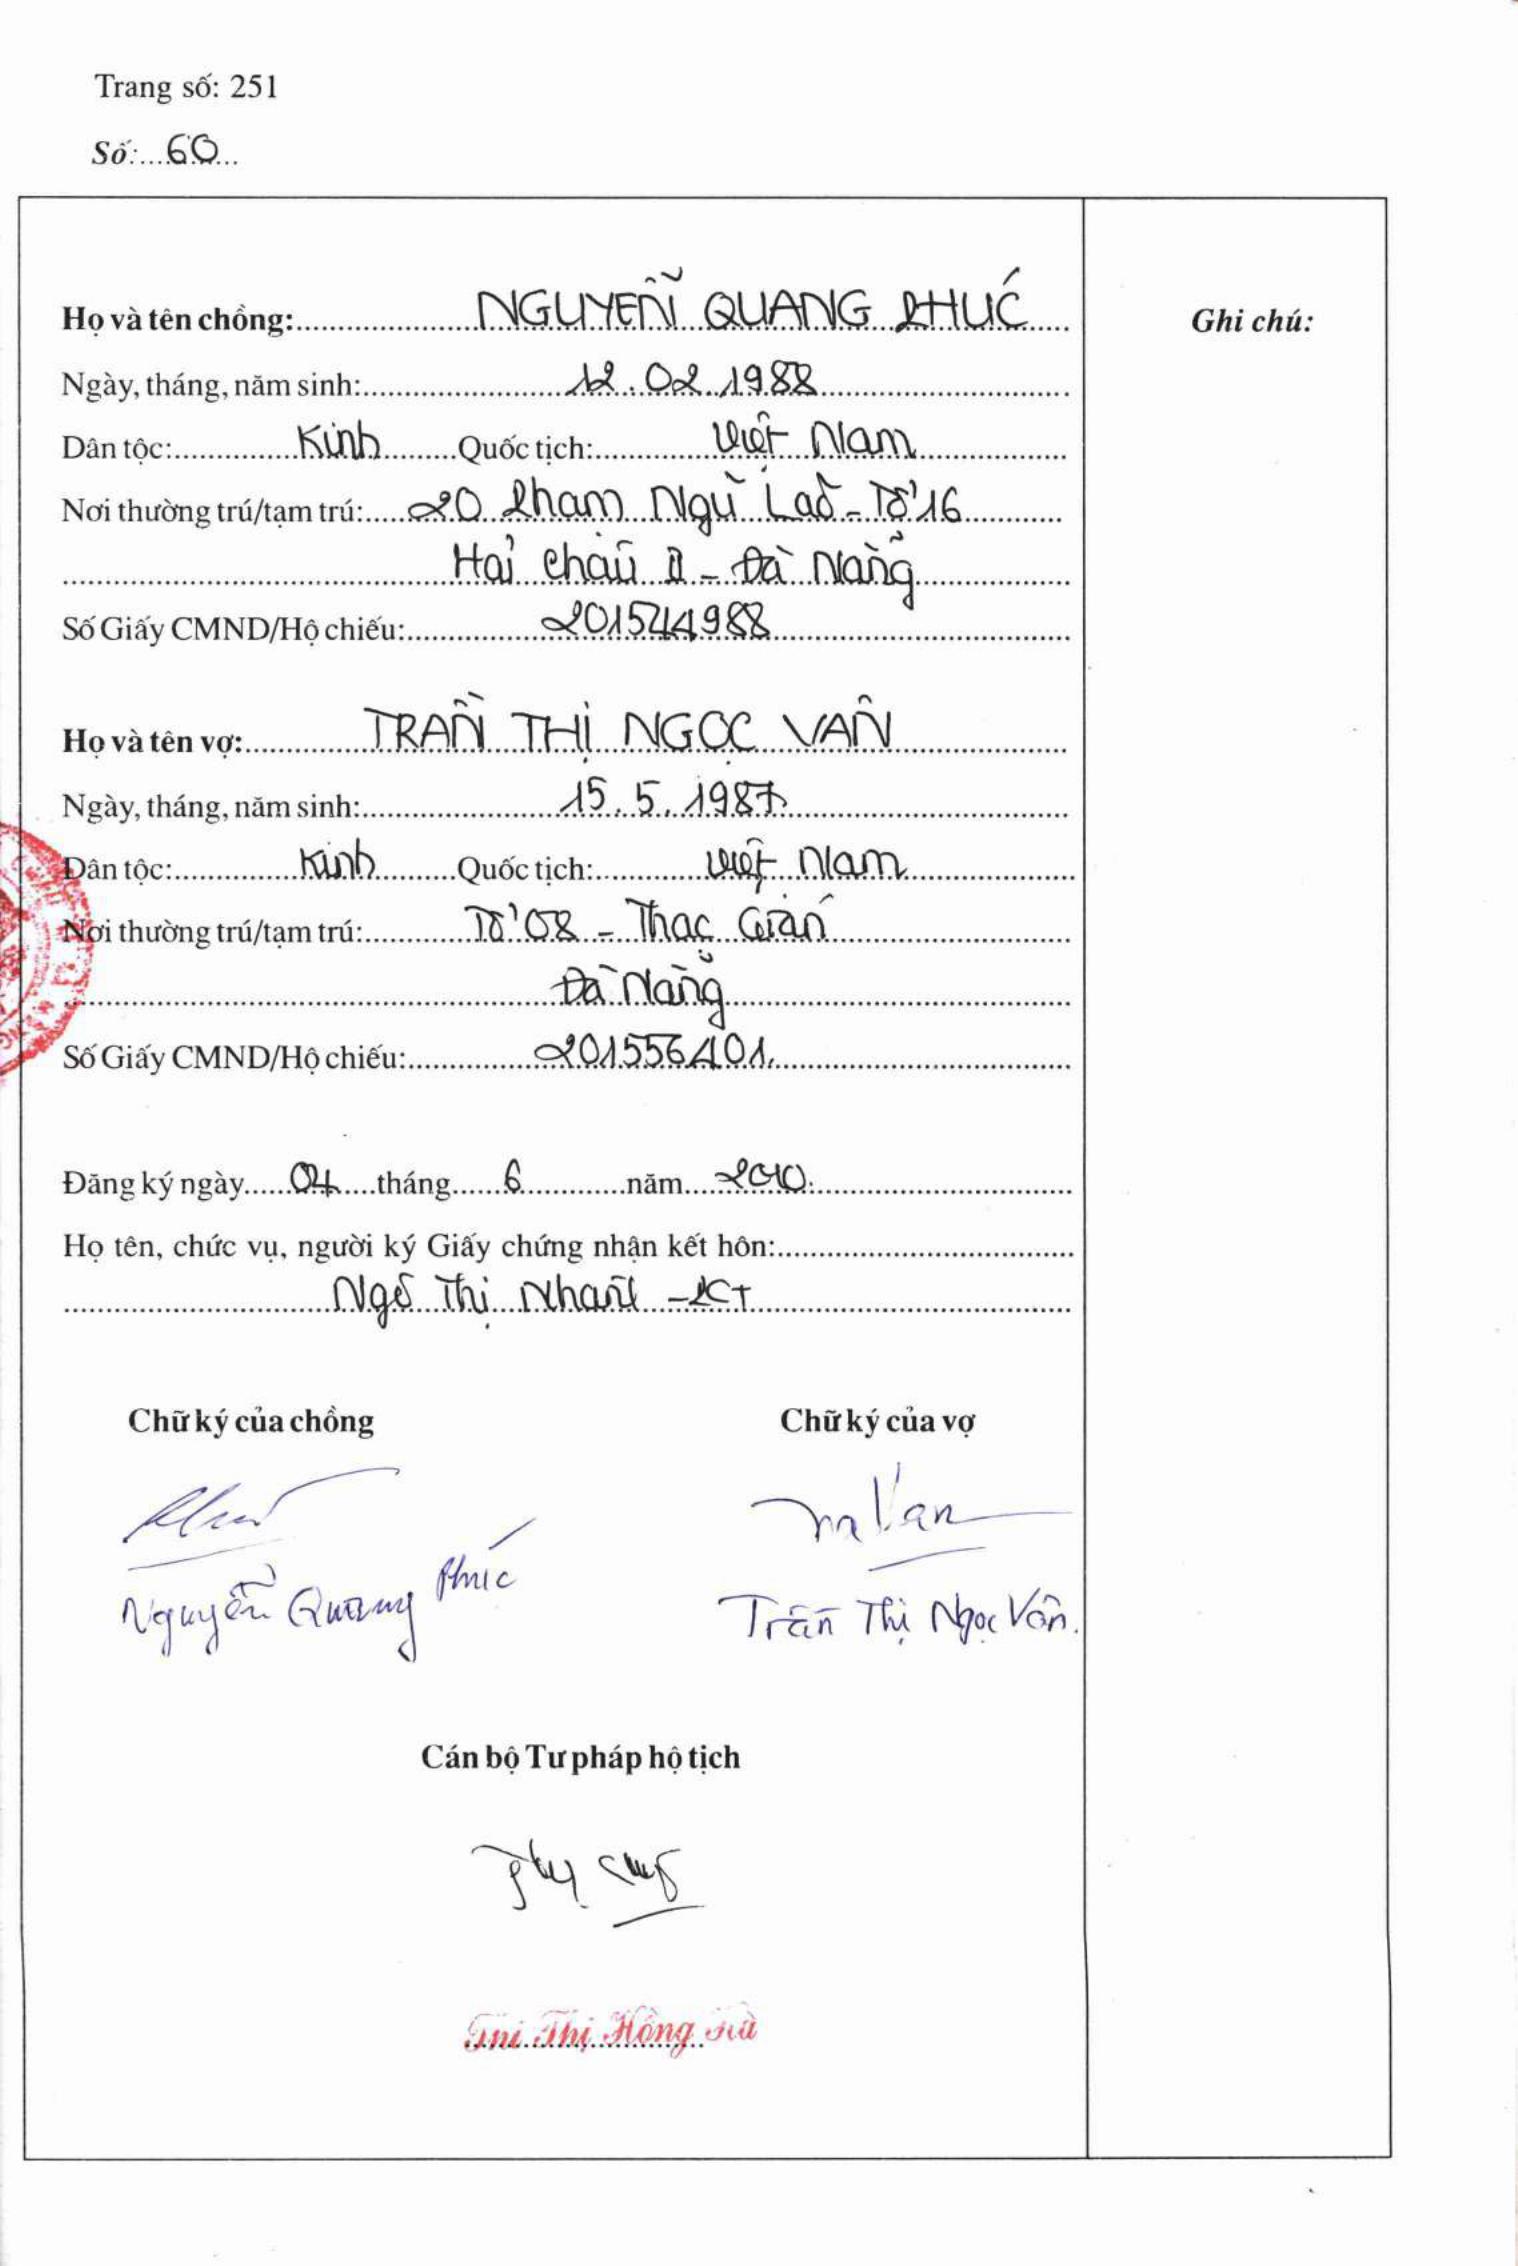 Trang số: 251
Số: 60
Họ và tên chồng: NGUYỄN QUANG PHÚC
Ghi chú:
Ngày, tháng, năm sinh: 12.02.1988
Dân tộc: Kinh Quốc tịch: Việt Nam
Nơi thường trú/tạm trú: 20 Phạm Ngũ Lão - Tổ 16
Hải Châu II - Đà Nẵng
Số Giấy CMND/Hộ chiếu: 201544988
Họ và tên vợ: TRẦN THỊ NGỌC VÂN
Ngày, tháng, năm sinh: 15.5.1987
Dân tộc: Kinh Quốc tịch: Việt Nam
Nơi thường trú/tạm trú: Tổ 08 - Thạc Gián
Đà Nẵng
Số Giấy CMND/Hộ chiếu: 201556401.
Đăng ký ngày 04 tháng 6 năm 2010.
Họ tên, chức vụ, người ký Giấy chứng nhận kết hôn:
Ngô Thị Nhanh - CT
Chữ ký của chồng Chữ ký của vợ
Nguyễn Quang Phúc Trần Thị Ngọc Vân.
Cán bộ Tư pháp hộ tịch
Thị Hồng Hà